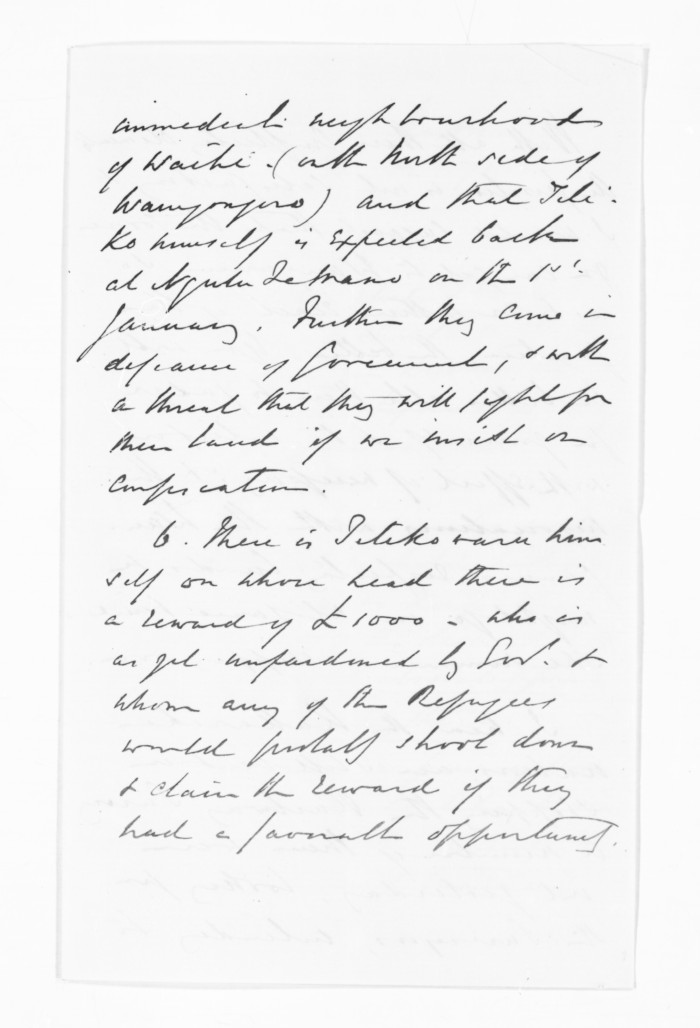 immediate neighbourhood
of Waihi - (on the North side of
Waingongoro) and that Tito-
ko himself is expected back
at Ngutu Te Manu on the 1st.
January. Further they come in
defiance of Government, & with
a threat that they will fight for
their land if we insist on
confiscation.
6. There is Titokowaru him
self on whose head there is
a reward of £1000 - who is
as yet unpardoned by Govt. &
whom any of the Refugees
would probably shoot down
& claim the reward if they
had a favourable opportunity.